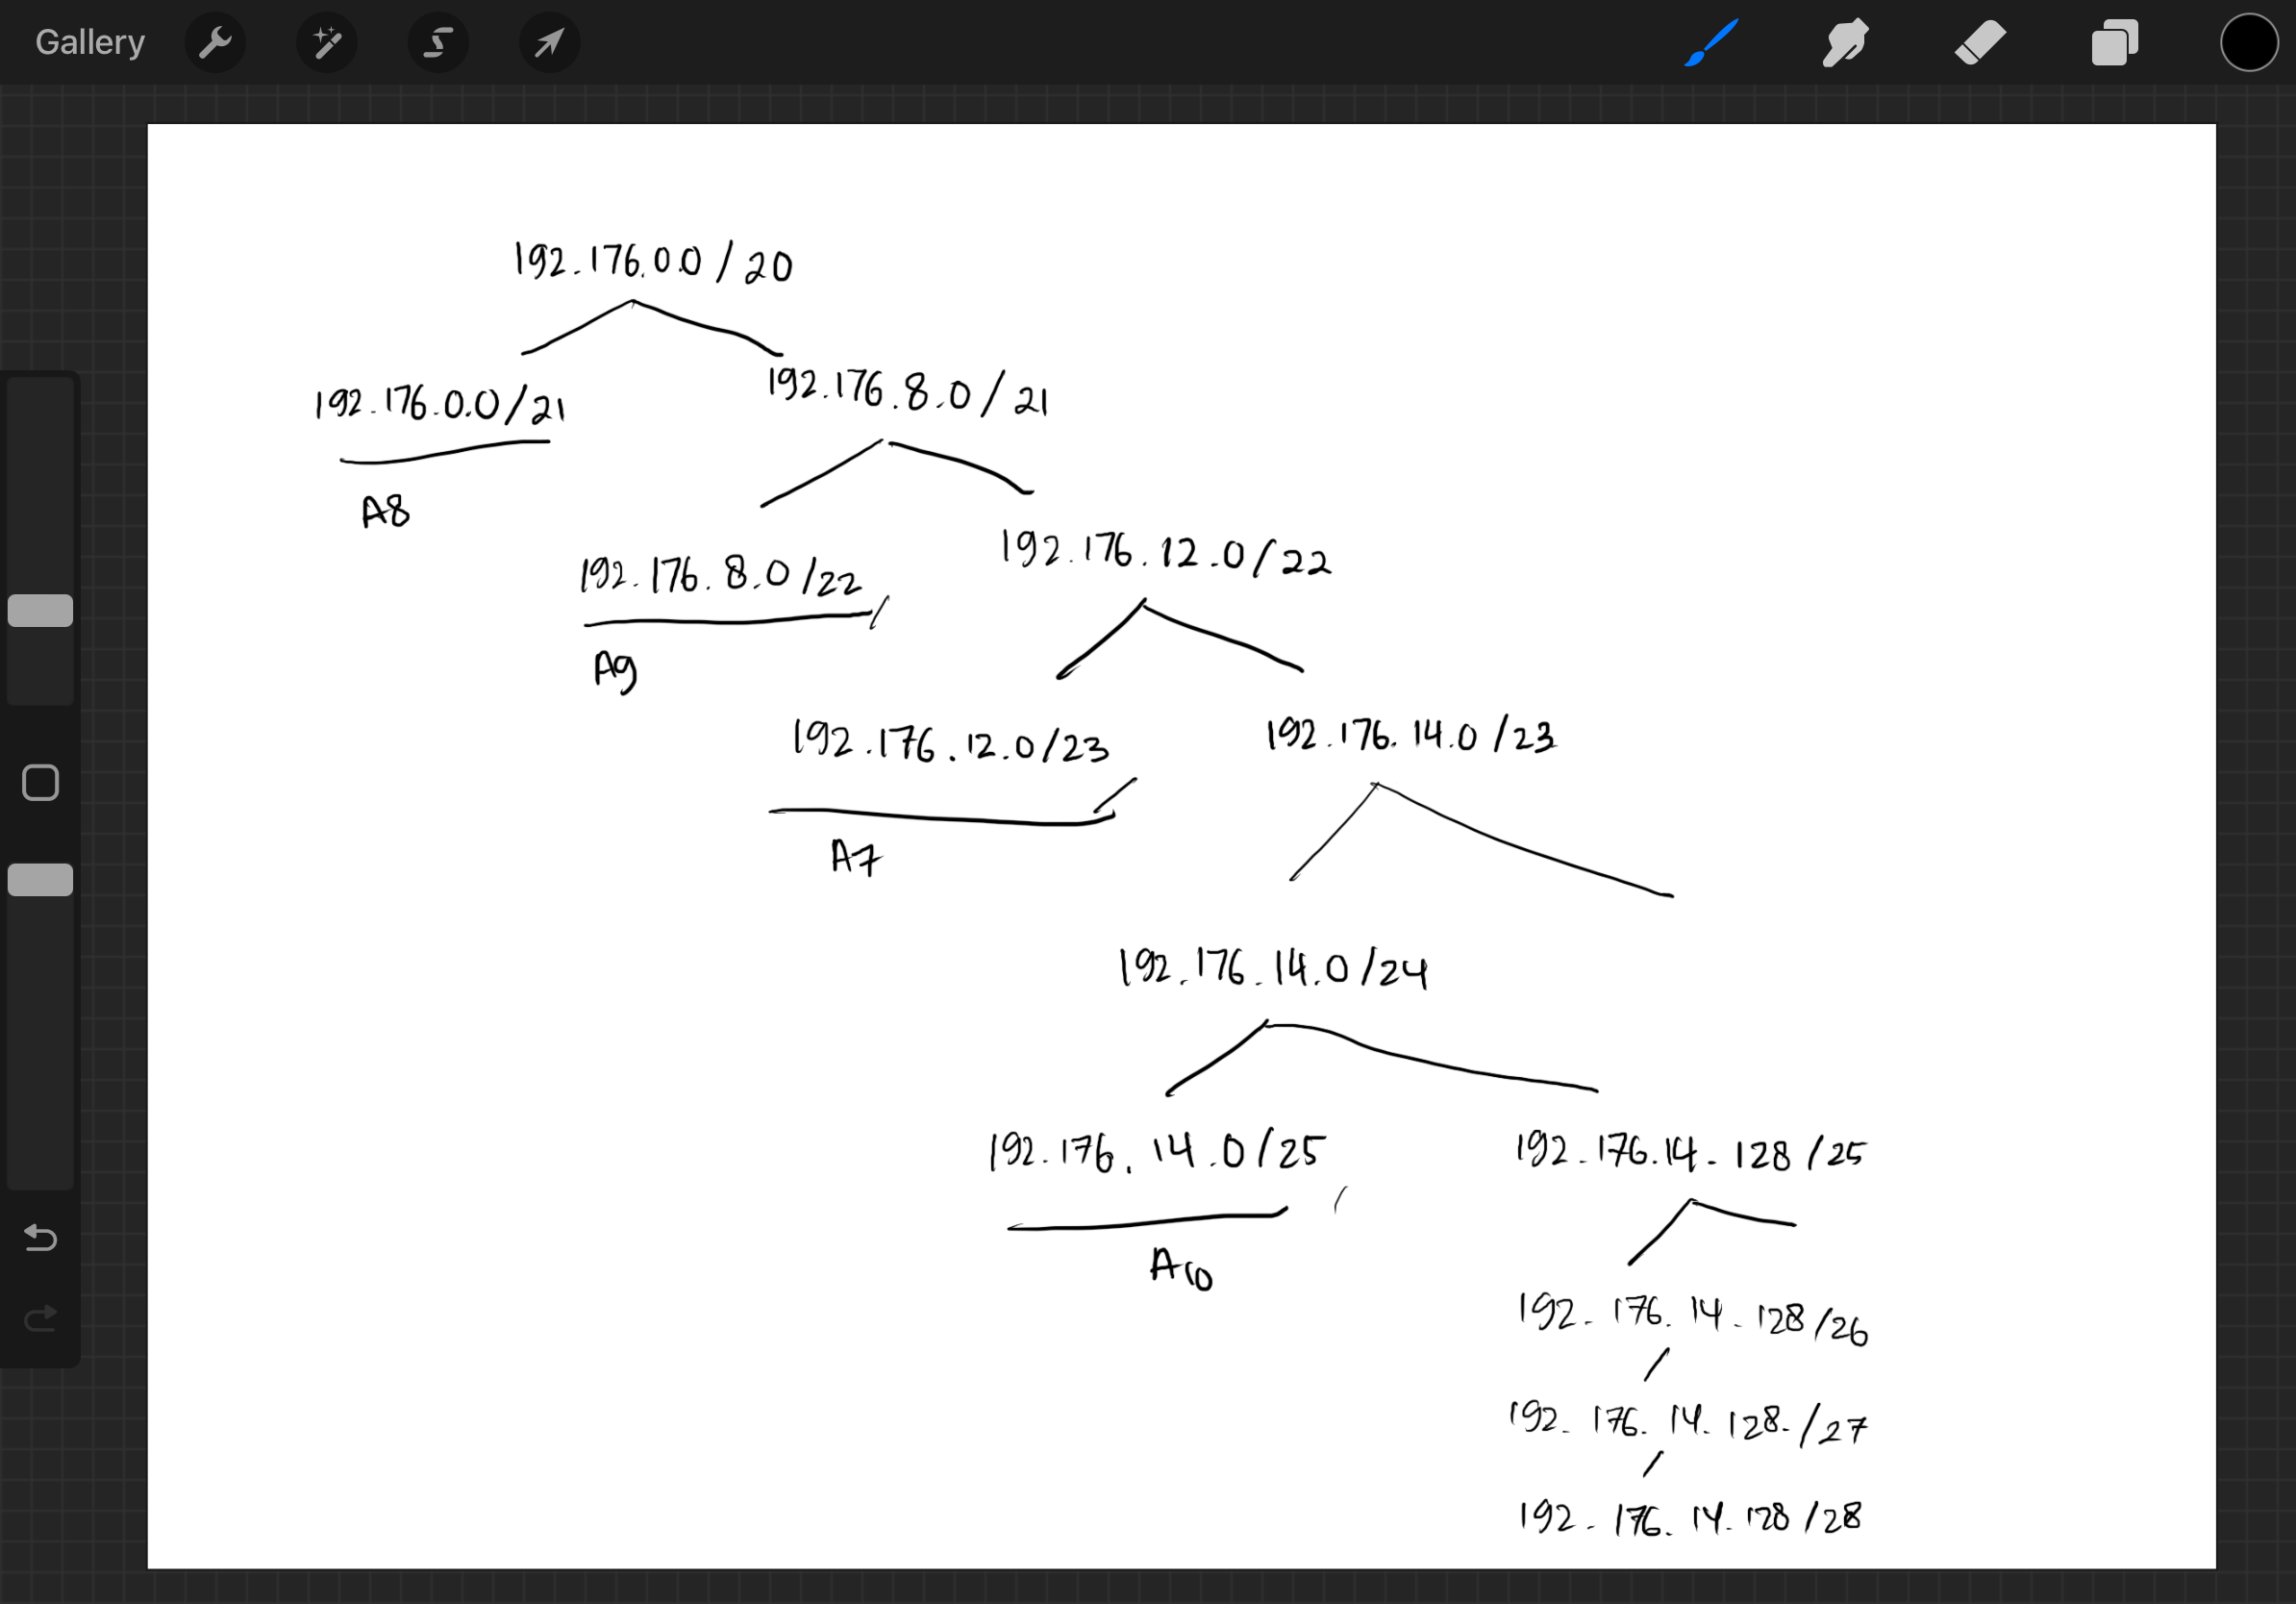 Gallery
192.176.0.0/20
192.176.0.0/21
192.176.8.0/21
A8
192.176.8.0/22
192.176.12.0/22
A9
192.176.12.0/23
192.176.14.0/23
A7
192.176.14.0/24
192.176.14.0/25
192.176.14.128/25
A10
192.176.14.128/26
192.176.14.128./27
192.176.14.128/28